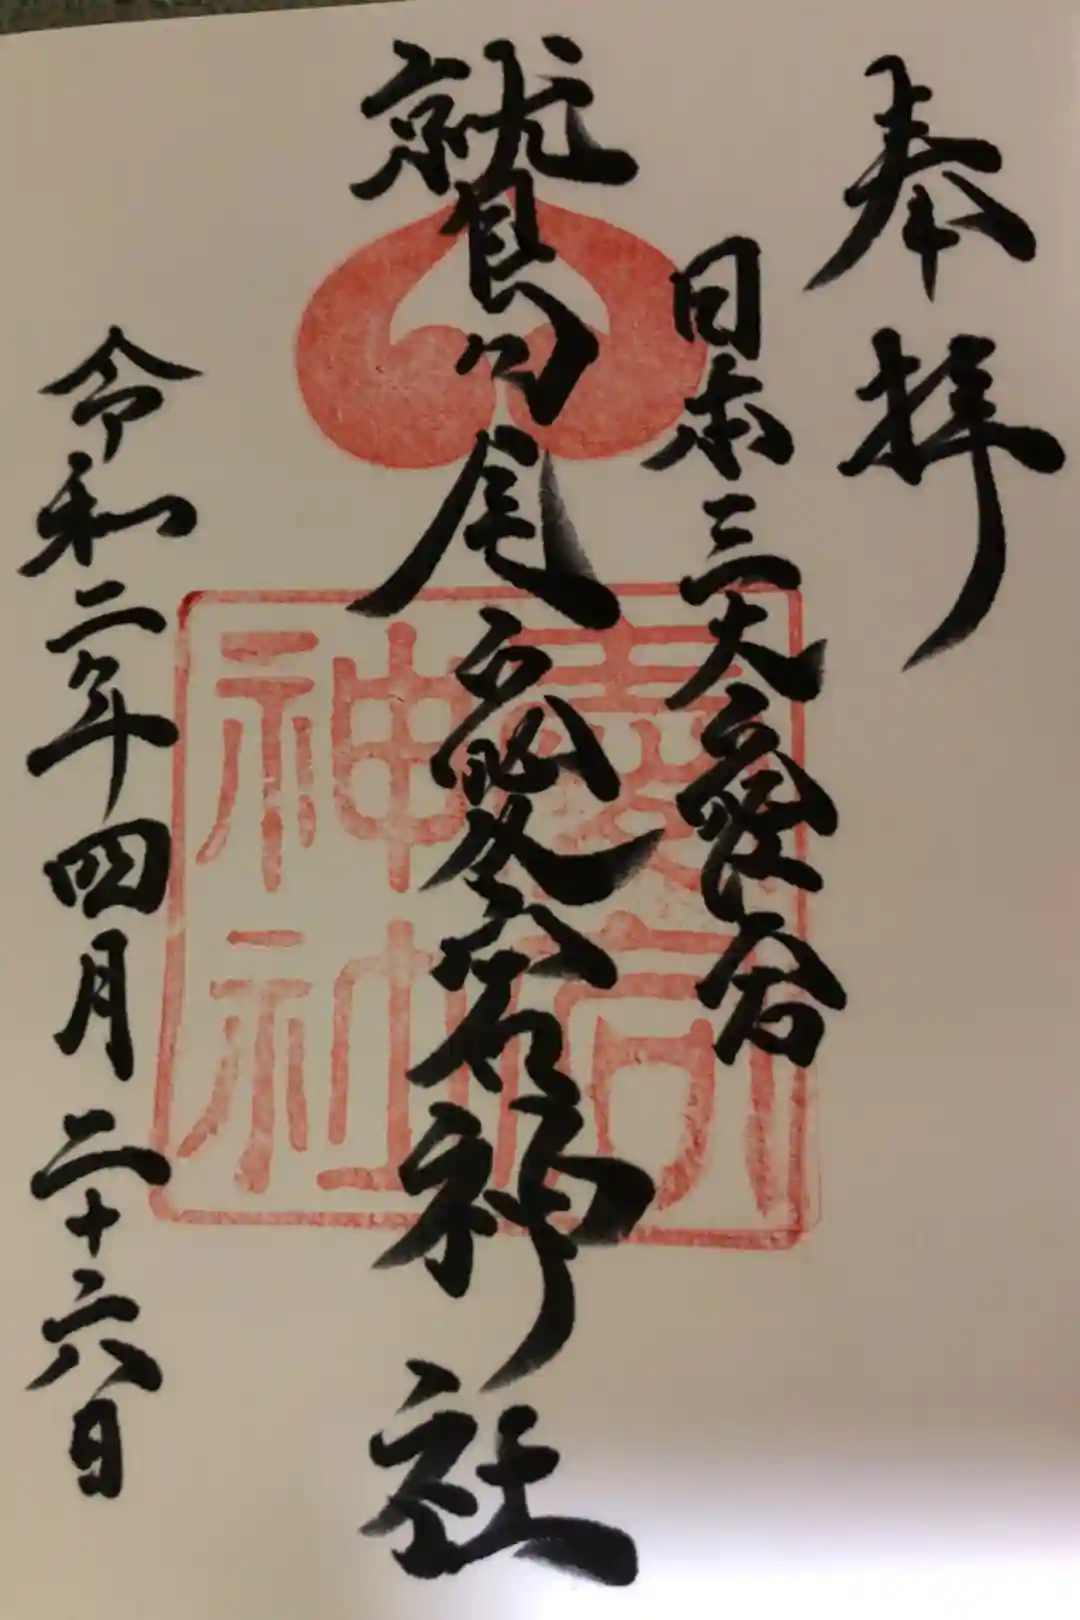 奉拝
日本三大愛宕
鷲尾愛宕神社
令和二年四月二十六日
愛宕
神社